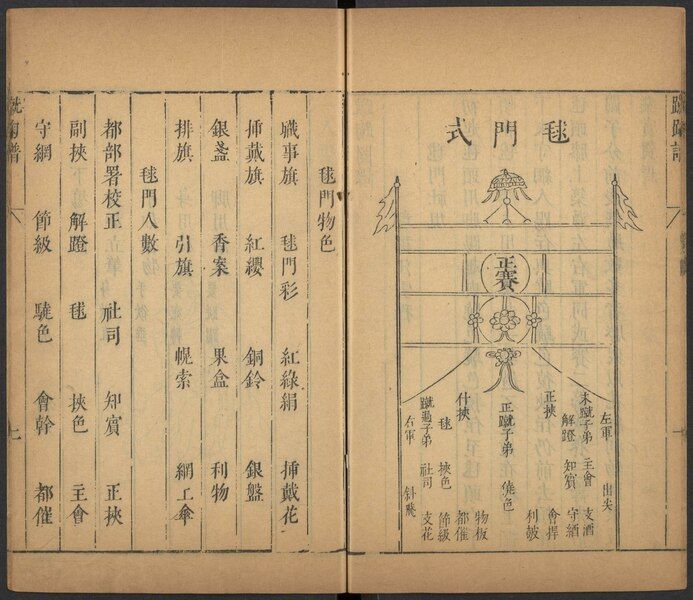 毬門式
正賽
左軍 出尖
未蹴子弟 主會 支酒
解蹬 知賓 守網
正挾 會幹
利皷
正蹴子弟 驍色
物板
什挾 都催
毬 挾色 節級
蹴過子弟 社司 支花
右軍 斜飐
毬門物色
職事旗 毬門彩 紅綠絹 揷戴花
揷戴旗 紅纓 銅鈴 銀盤
銀盞 香案 果盒 利物
排旗 引旗 幌索 網工傘
毬門人數
都部署校正 社司 知賓 正挾
副挾 解蹬 毬 挾色 主會
守網 節級 驍色 會幹 都催